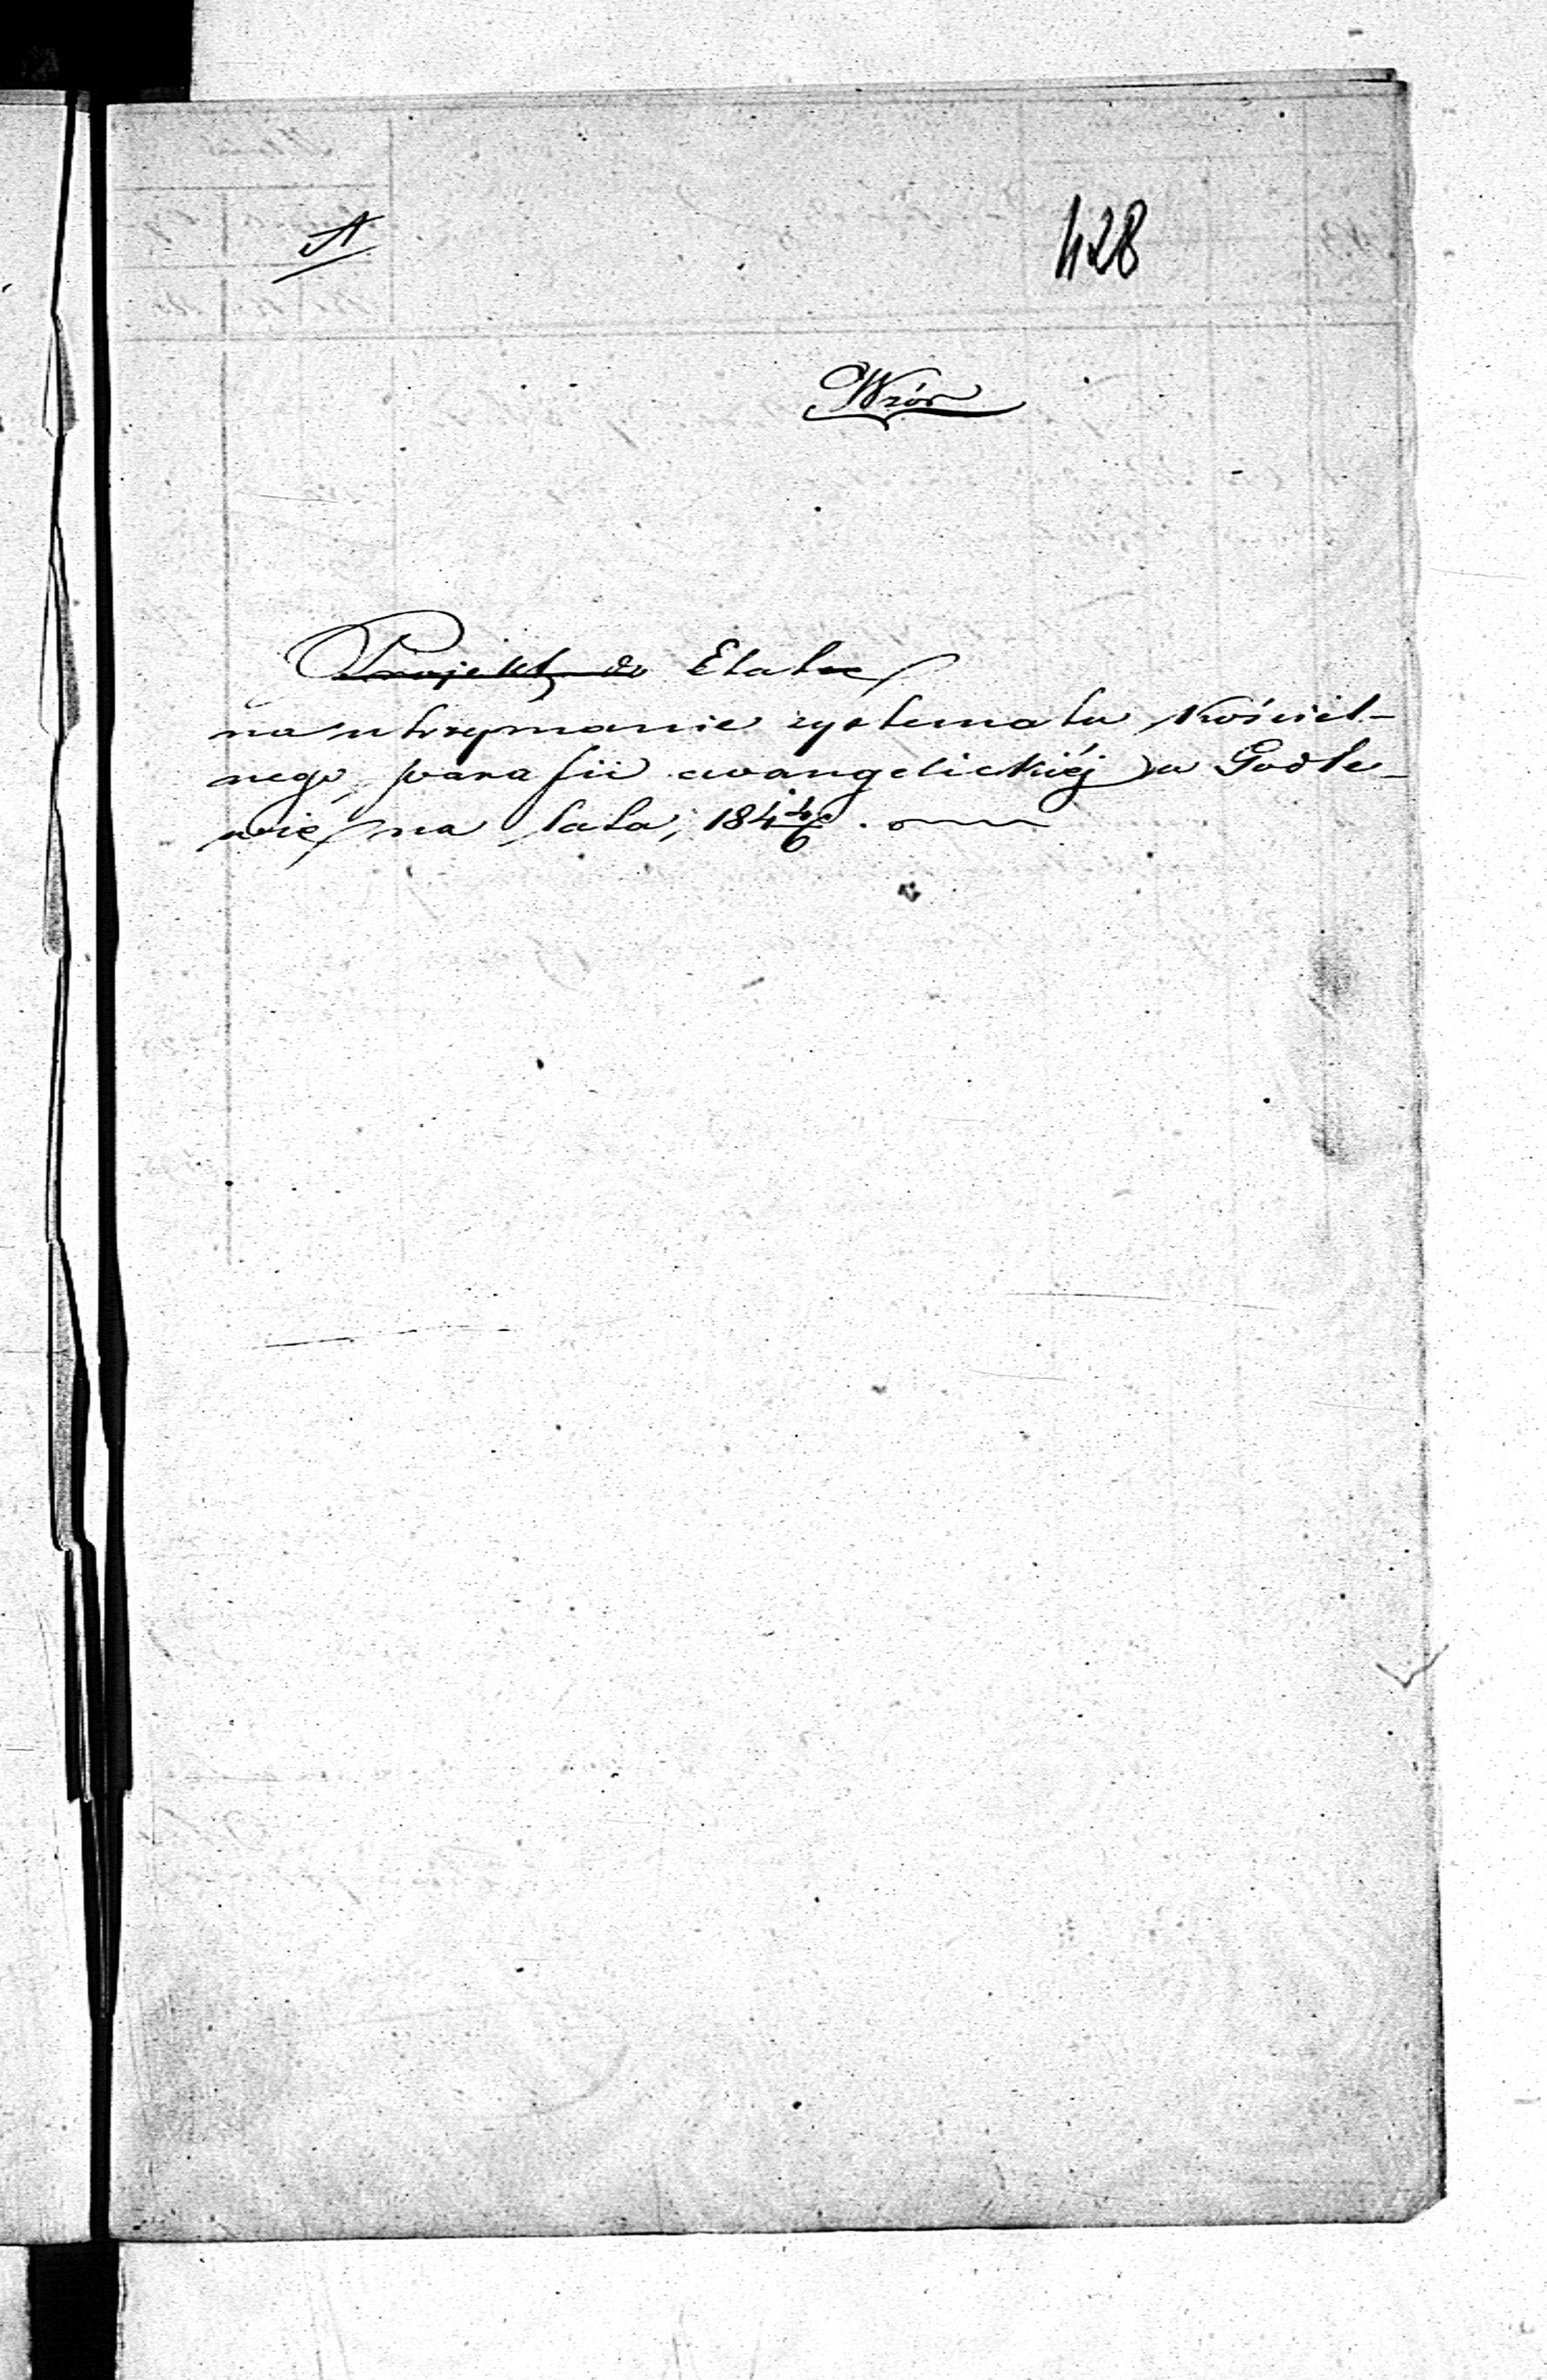 A
428
Wzór
Projekt do Etatu
na utrzymanie systematu Kościel-
nego, parafii ewangelickiéj w Godle-
wie na lata, 184 4/6.